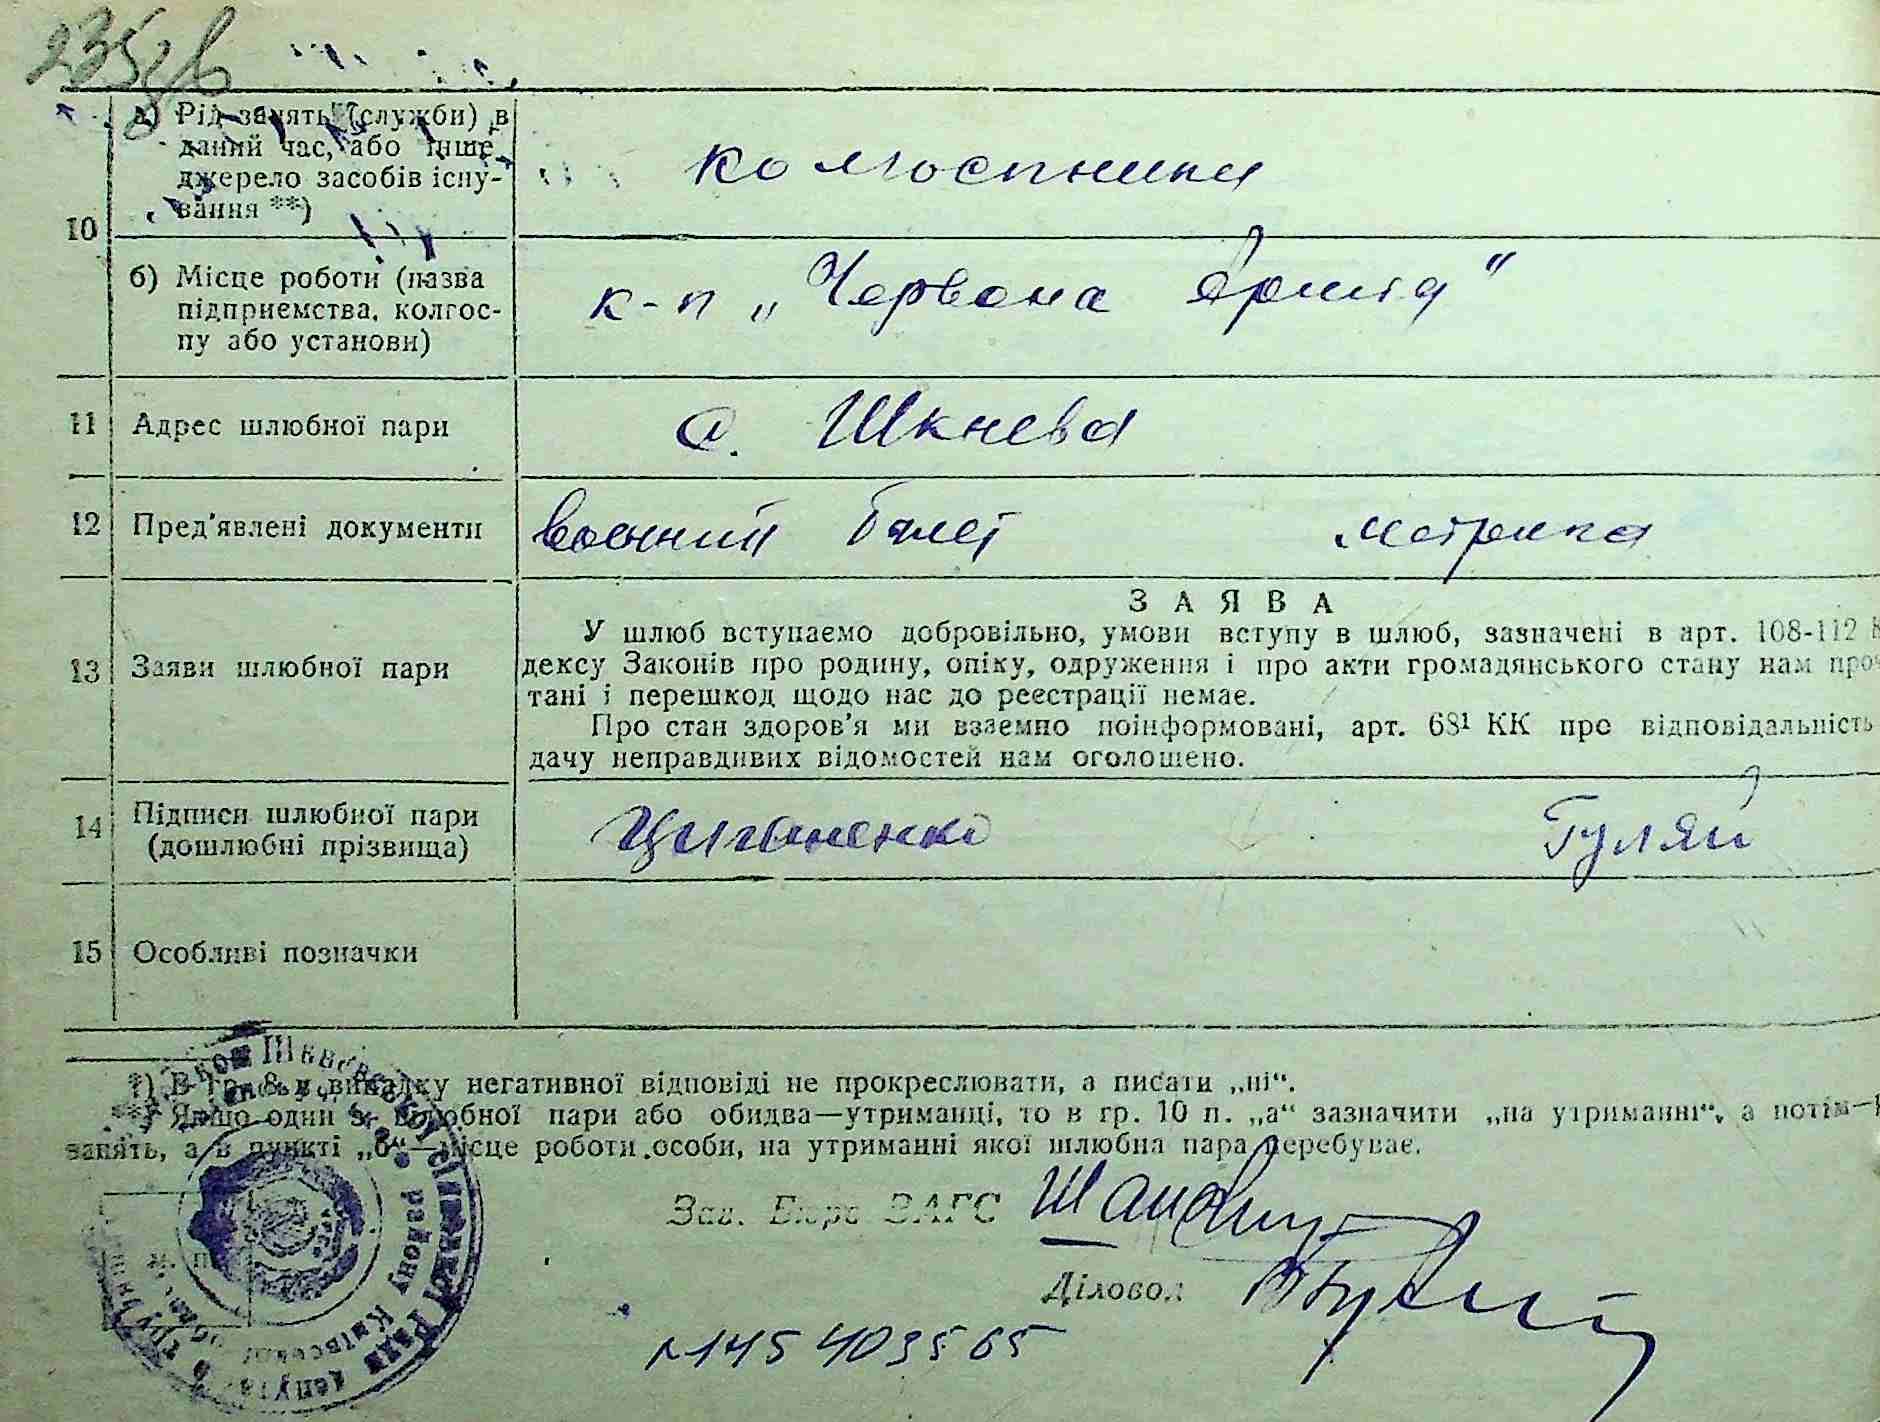 235зв
10
а) Рід занять (служби) в
даний час, або інше
джерело засобів існу-
вання **)
колгоспники
б) Місце роботи (назва
підприємства, колгос-
пу або установи)
к-п „Червона Армія"
11 Адрес шлюбної пари
с. Шкнева
12 Пред'явлені документи
военний билет метрика
13 Заяви шлюбної пари
ЗАЯВА
У шлюб вступаемо добровільно, умови вступу в шлюб, зазначені в арт. 108-112 К
дексу Законів про родину, опіку, одруження і про акти громадянського стану нам проч
тані і перешкод щодо нас до реєстрації немає.
Про стан здоров'я ми взаємно поінформовані, арт. 68¹ КК про відповідальність
дачу неправдивих відомостей нам оголошено.
14 Підписи шлюбної пари
(дошлюбні прізвища)
Циганенко Гуляй
15 Особливі позначки
*) В гр. 8 у випадку негативної відповіді не прокреслювати, а писати „ні“.
**) Якщо один з шлюбної пари або обидва—утриманці, то в гр. 10 п. „а“ зазначити „на утриманні“, а потім—
занять, а в пункті „б“—місце роботи особи, на утриманні якої шлюбна пара перебуває.
Зав. Бюро ЗАГС
Діловод
м. п.
району Київської
№145 403565